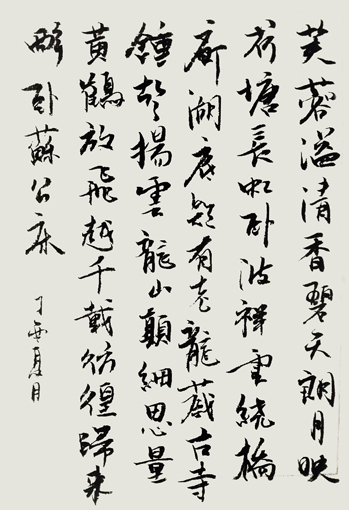 芙蓉溢清香碧天朗月映
荷塘長虹卧波禅雲繞橋
廊湖底疑有老龍藏古寺
鐘聲揚雲龍山顛細思量
黃鶴放飛越千載彷徨歸来
醉卧蘇公床
丁酉夏月